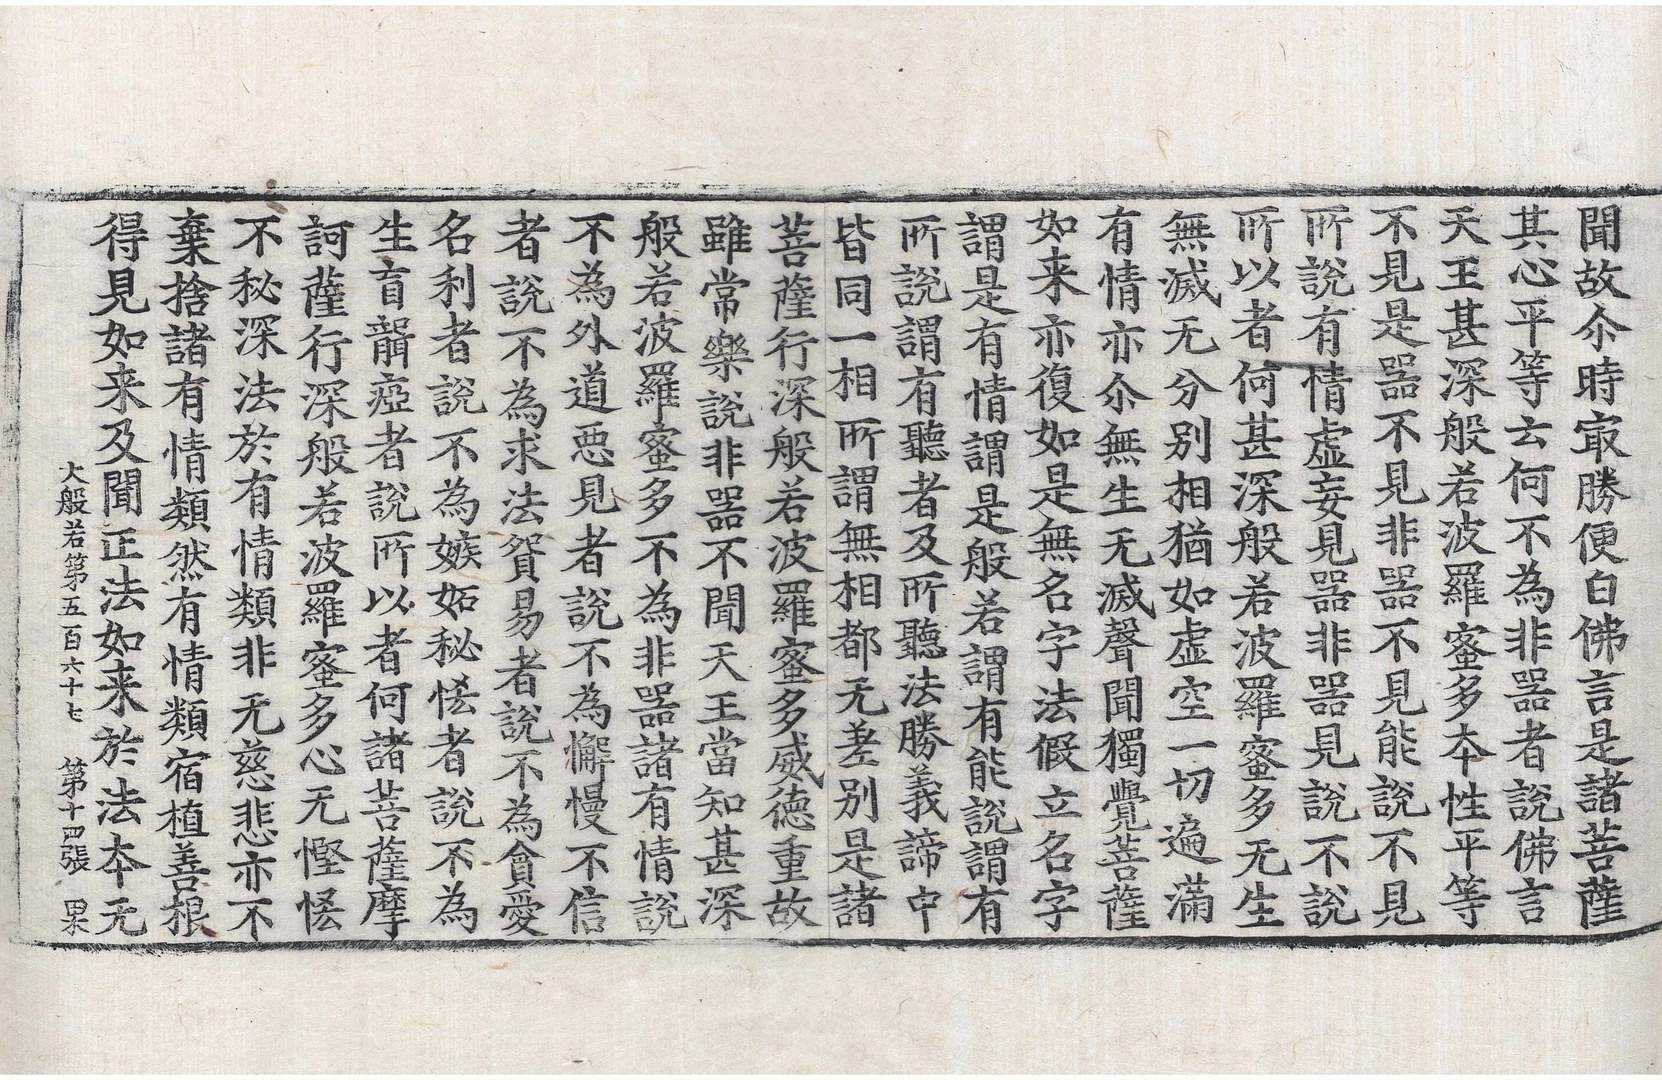 聞故尒時㝡勝便白佛言是諸菩薩
其心平等云何不為非器者說佛言
天王甚深般若波羅蜜多本性平等
不見是器不見非器不見能說不見
所說有情虛妄見器非器見說不說
所以者何甚深般若波羅蜜多无生
無滅无分別相猶如虛空一切遍滿
有情亦尒無生无滅聲聞獨覺菩薩
如来亦復如是無名字法假立名字
謂是有情謂是般若謂有能說謂有
所說謂有聽者及所聽法勝義諦中
皆同一相所謂無相都无差別是諸
菩薩行深般若波羅蜜多威德重故
雖常樂說非器不聞天王當知甚深
般若波羅蜜多不為非器諸有情說
不為外道惡見者說不為懈慢不信
者說不為求法貿易者說不為貪愛
名利者說不為嫉妬秘恡者說不為
生盲聾瘂者說所以者何諸菩薩摩
訶薩行深般若波羅蜜多心无慳恡
不秘深法於有情類非无慈悲亦不
棄捨諸有情類然有情類宿植善根
得見如来及聞正法如来於法本无
大般若第五百六十七 第十四張 果